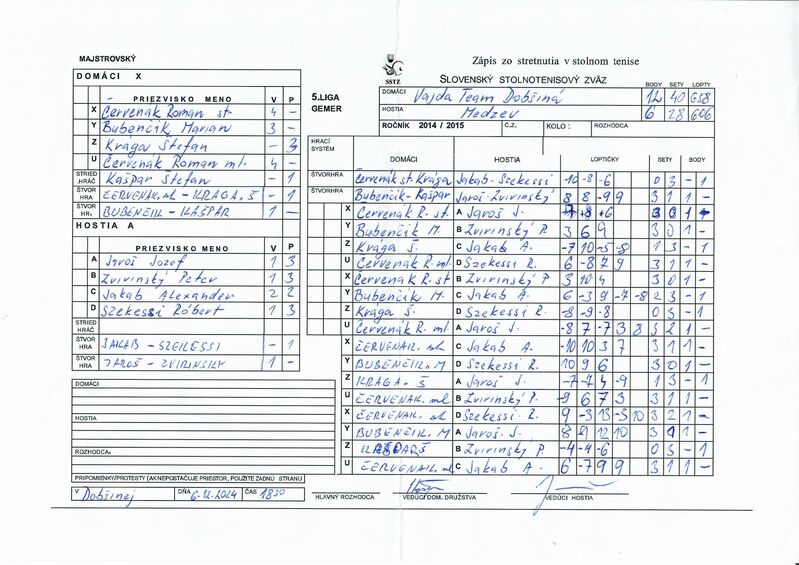 MAJSTROVSKÝ
Zápis zo stretnutia v stolnom tenise
SSTZ
SLOVENSKÝ STOLNOTENISOVÝ ZVÄZ
DOMÁCI X
PRIEZVISKO MENO V P
X Červenák Roman st. 4 -
Y Bubenčík Marian 3 -
Z Krága Štefan - 3
U Červenák Roman ml. 4 -
STRIED HRÁČ Kašpar Štefan - 1
ŠTVOR HRA ČERVENÁK. ml - KRAGA. Š - 1
ŠTVOR HRA BUBENČIK - KAŠPAR 1 -
HOSTIA A
PRIEZVISKO MENO V P
A Jaroš Jozef 1 3
B Zvirinský Peter 1 3
C Jakab Alexander 2 2
D Szekessi Róbert 1 3
STRIED HRÁČ
ŠTVOR HRA JAKAB - SZEKESSI 1 -
ŠTVOR HRA JAROŠ - ZVIRINSKY - 1
DOMÁCI
HOSTIA
ROZHODCA:
PRIPOMIENKY/PROTESTY (AK NEPOSTAČUJE PRIESTOR, POUŽITE ZADNÚ STRANU
V Dobšinej DŇA 6.12.2024 ČAS 18 30
5.LIGA
GEMER
BODY SETY LOPTY
DOMÁCI Vajda Team Dobšiná 12 40 658
HOSTIA Medzev 6 28 606
ROČNÍK 2014 / 2015 Č.Z. KOLO : ROZHODCA
HRACÍ SYSTÉM
DOMÁCI HOSTIA LOPTIČKY SETY BODY
ŠTVORHRA Červenák st. Krága Jakab - Szekessi -10 -8 -6 0 3 - 1
ŠTVORHRA Bubenčík - Kašpar Jaroš - Zvirinský 8 8 -9 9 3 1 1 -
X Červenák R. st. A Jaroš J.
Y Bubenčík M. B Zvirinský P. 3 6 9 3 0 1 -
Z Krága Š. C Jakab A. -7 10 -5 -8 1 3 - 1
U Červenák R. ml. D Szekessi R. 6 -8 7 9 3 1 1 -
X Červenák R. st B Zvirinský P 3 10 4 3 0 1 -
Y Bubenčík M. C Jakab A. 6 -3 9 -7 -8 2 3 - 1
Z Krága Š. D Szekessi R. -8 -9 -8 0 3 - 1
U Červenák R. ml A Jaroš J.
X ČERVENAK. st C Jakab A. -10 10 3 7 3 1 1 -
Y BUBENČIK. M D Szekessi R. 10 9 6 3 0 1 -
Z KRAGA. Š A Jaroš J. -7 -7 4 -9 1 3 - 1
U ČERVENAK. ml B Zvirinský P. -9 6 7 3 3 1 1 -
X ČERVENAK. st D Szekessi R. 9 -3 13 -3 10 3 2 1 -
Y BUBENČIK. M A Jaroš. J.
Z B Zvirinský P. -4 -4 -6 0 3 - 1
U ČERVENAK. ml C Jakab A. 6 -7 9 9 3 1 1 -
HLAVNÝ ROZHODCA VEDÚCI DOM. DRUŽSTVA VEDÚCI HOSTIA